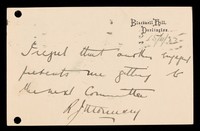 Blackwell Hill,
Darlington.
I regret that another engagement
prevents me getting to
the next Committee